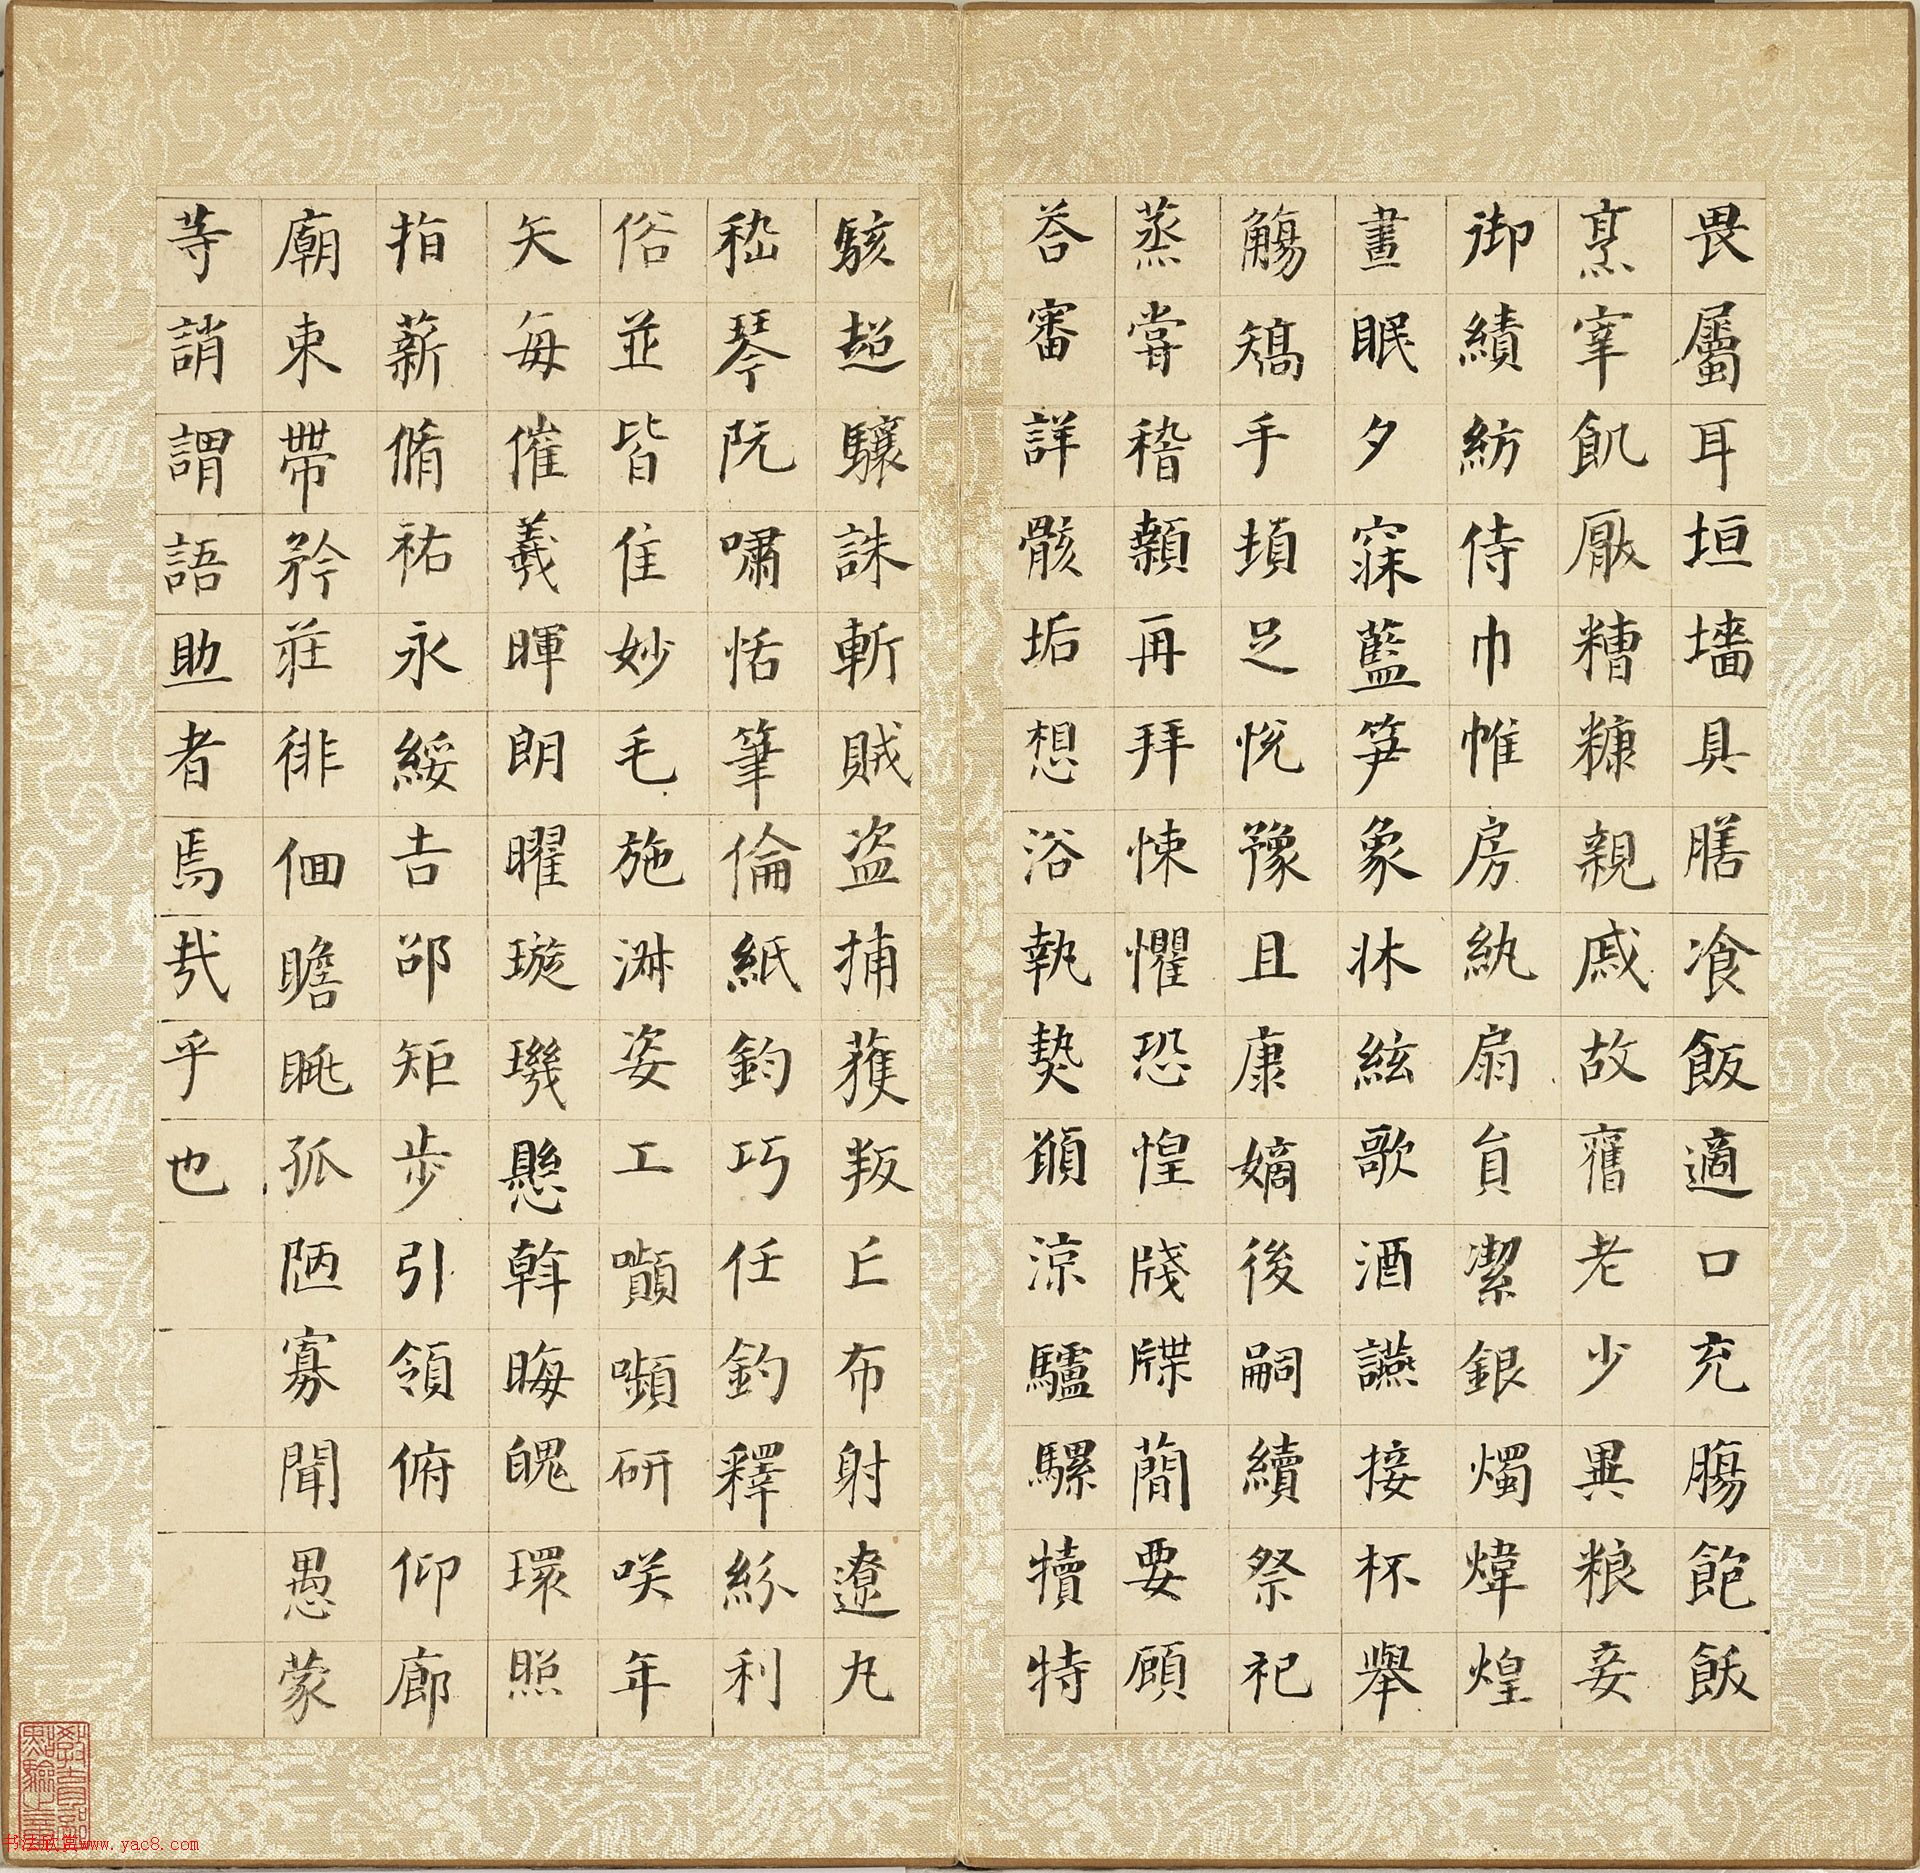 畏屬耳垣墻具膳飡飯適口充腸飽飫
烹宰飢厭糟糠親戚故舊老少異粮妾
御績紡侍巾帷房紈扇貟潔銀燭煒煌
晝眠夕寐藍笋象牀絃歌酒讌接杯舉
觴矯手頓足悅豫且康嫡後嗣續祭祀
蒸嘗稽顙再拜悚懼恐惶牋牒簡要顧
荅審詳骸垢想浴執熱願涼驢騾犢特
駭超驤誅斬賊盗捕獲叛亡布射遼丸
嵇琴阮嘯恬筆倫紙鈞巧任釣釋紛利
俗並皆佳妙毛施淑姿工顰嚬研咲年
矢每催羲暉朗曜璇璣懸斡晦魄環照
指薪脩祐永綏吉邵矩步引領俯仰廊
廟束帶矜莊徘徊瞻眺孤陋寡聞愚蒙
等誚謂語助者焉哉乎也
书法欣赏www.yac8.com